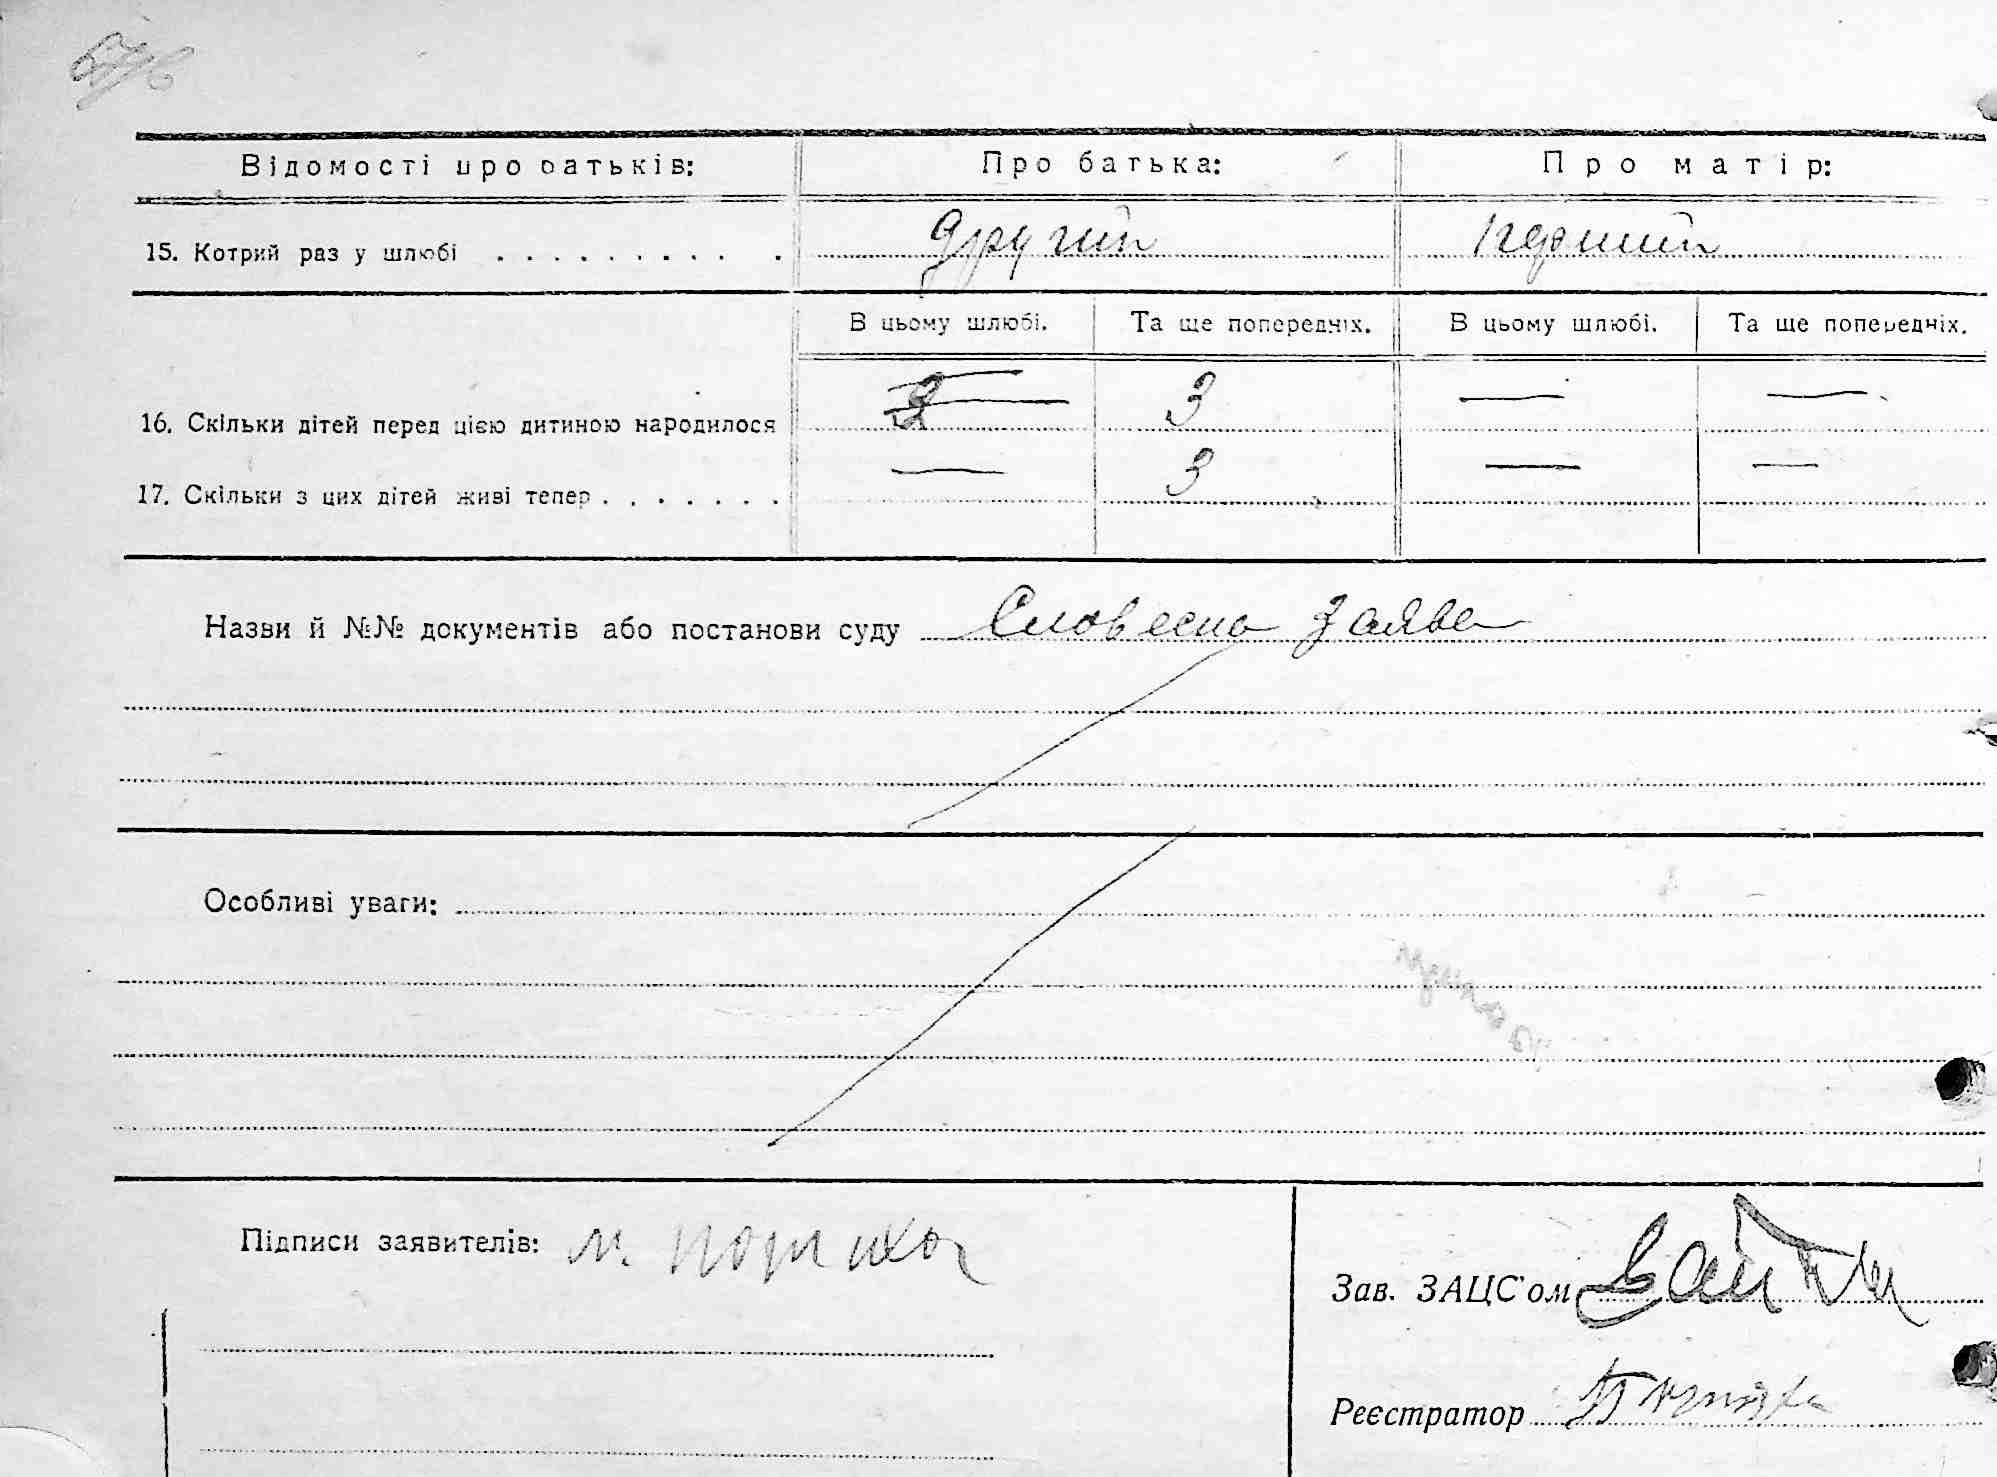 Відомості про батьків: Про батька: Про матір:
15. Котрий раз у шлюбі . . . . . . . . . . другий перший
В цьому шлюбі. Та ще попередніх. В цьому шлюбі. Та ще попередніх.
16. Скільки дітей перед цією дитиною народилося 3 — —
17. Скільки з цих дітей живі тепер . . . . . . . — 3 — —
Назви й №№ документів або постанови суду Словесна заява
Особливі уваги:
Підписи заявителів: М.
Зав. ЗАЦС'ом
Реєстратор